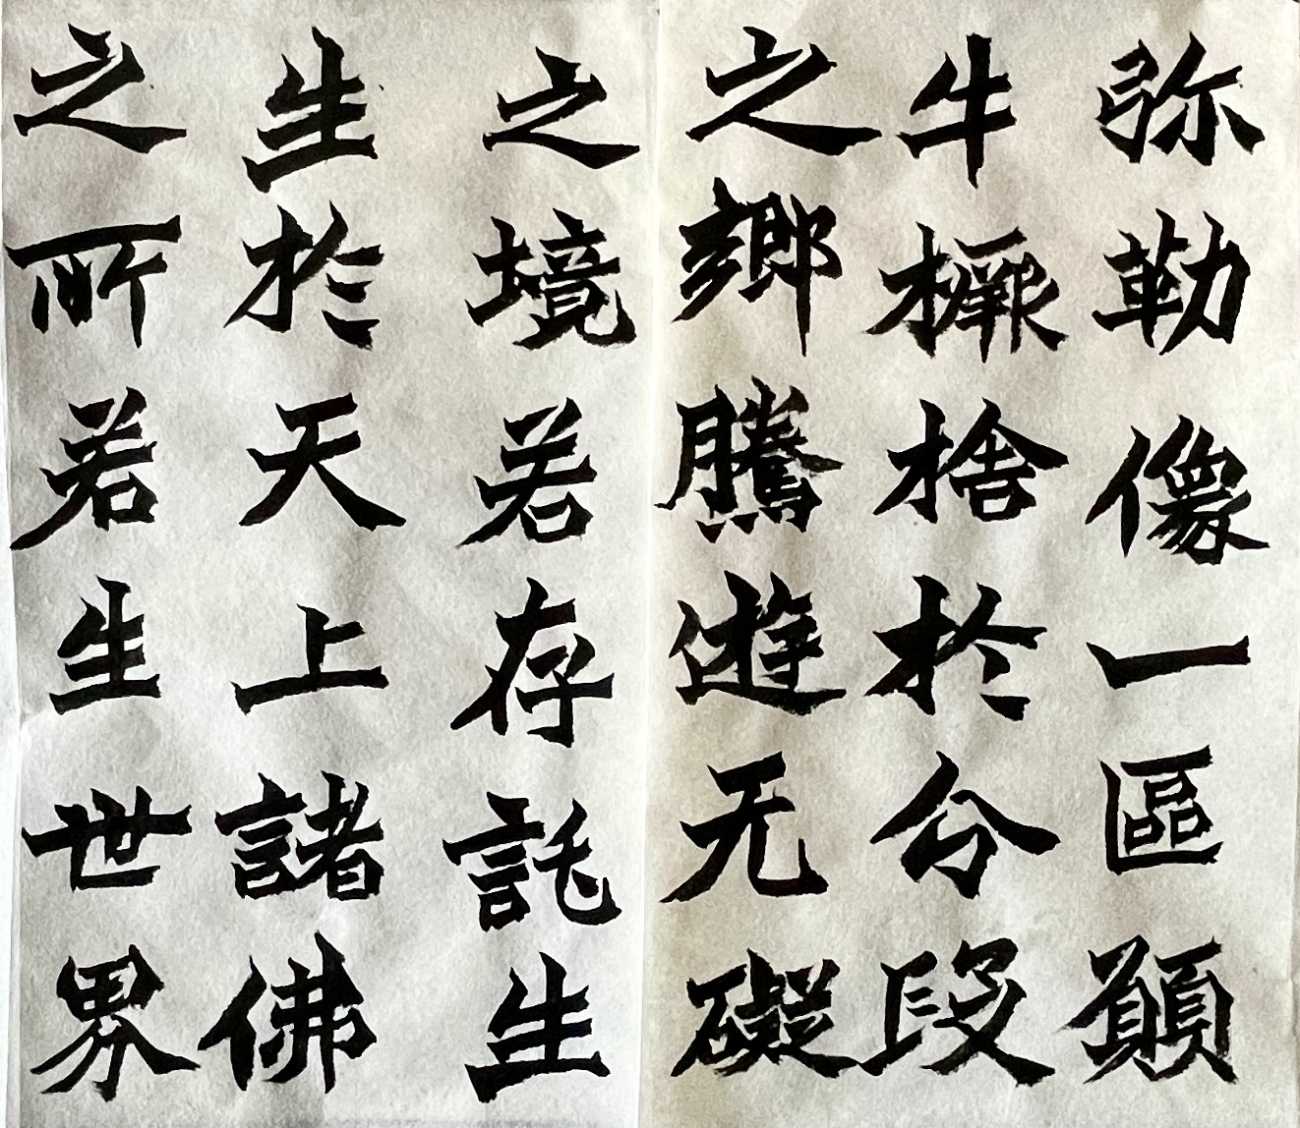 弥勒像一區願
牛橛捨於分段
之鄉騰遊无礙
之境若存託生
生於天上諸佛
之所若生世界